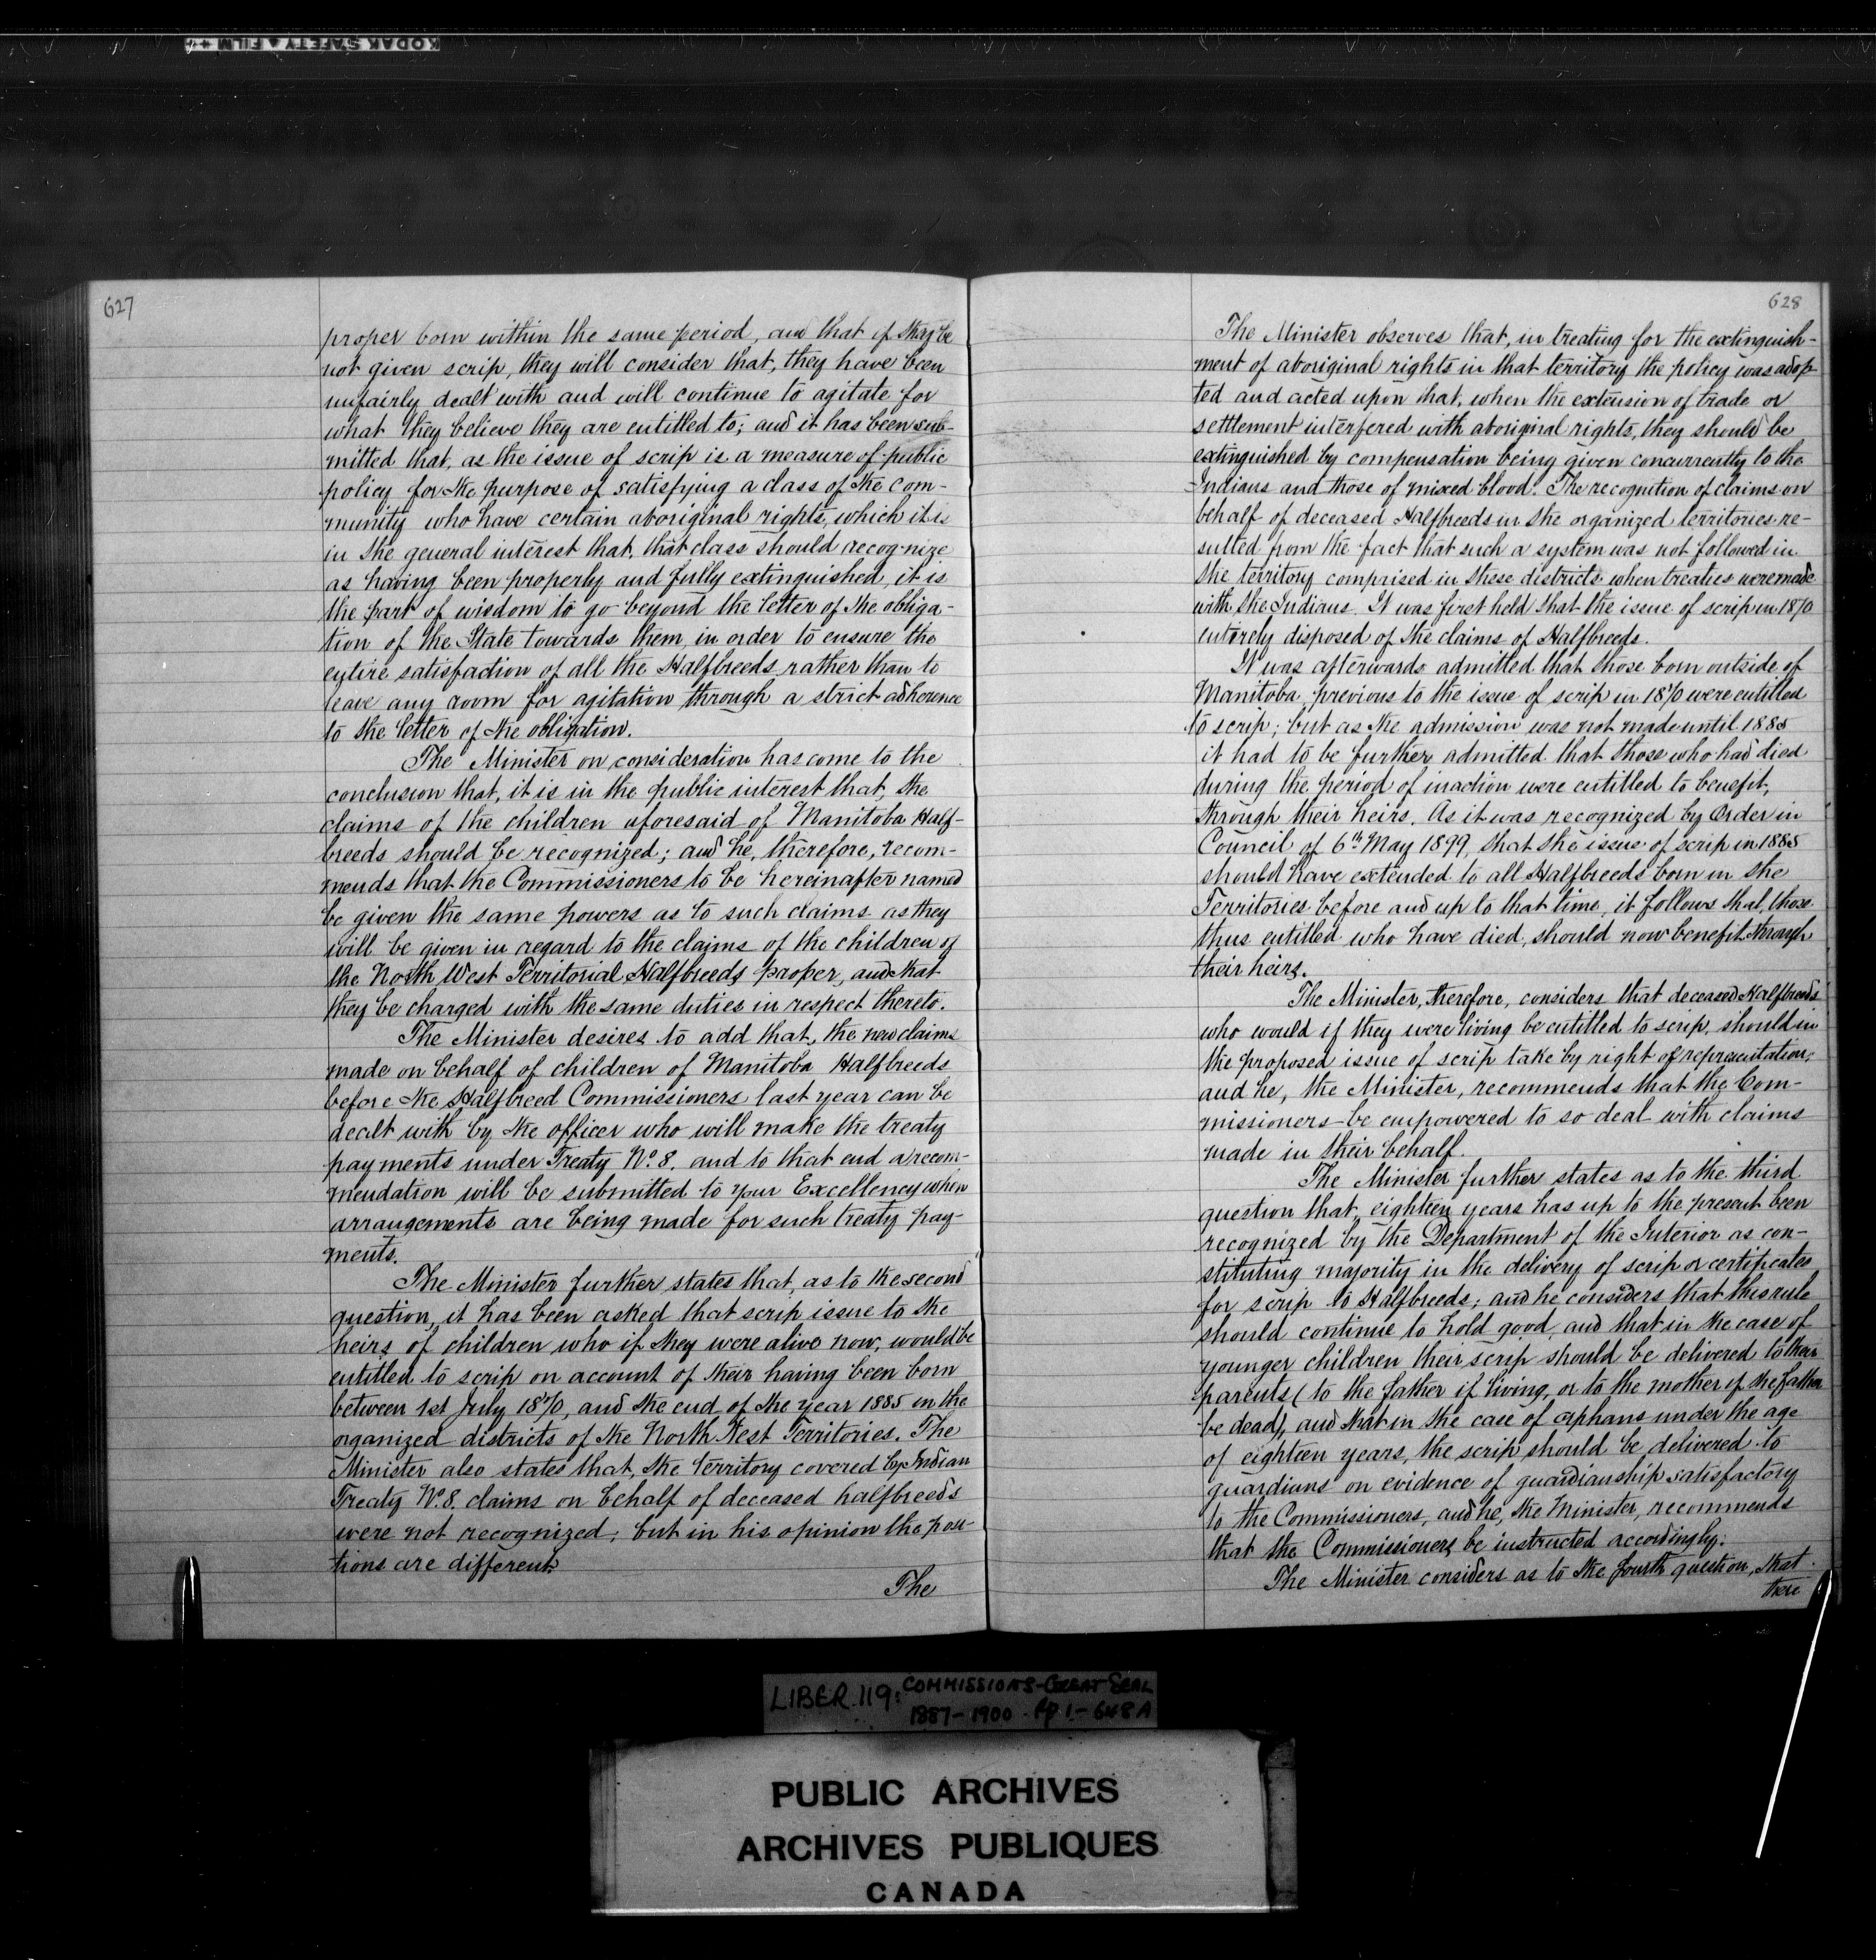 KODAK SAFETY FILM
627
proper born within the same period, and that if they be
not given scrip, they will consider that, they have been
unfairly dealt with and will continue to agitate for
what they believe they are entitled to; and it has been sub-
mitted that, as the issue of scrip is a measure of public
policy for the purpose of satisfying a class of the com-
munity who have certain aboriginal rights, which it is
in the general interest that, that class should recognize
as having been properly and fully extinguished, it is
the part of wisdom to go beyond the letter of the obliga-
tion of the State towards them, in order to ensure the
entire satisfaction of all the Halfbreeds, rather than to
leave any room for agitation through a strict adherence
to the letter of the obligation.
The Minister on consideration has come to the
conclusion that, it is in the public interest that, the
claims of the children aforesaid of Manitoba Half-
breeds should be recognized; and he, therefore, recom-
mends that the Commissioners to be hereinafter named
be given the same powers as to such claims as they
will be given in regard to the claims of the children of
the North West Territorial Halfbreeds proper, and that
they be charged with the same duties in respect thereto.
The Minister desires to add that, the new claims
made on behalf of children of Manitoba Halfbreeds
before the Halfbreed Commissioners last year can be
dealt with by the officer who will make the treaty
payments under Treaty No. 8. and to that end a recom-
mendation will be submitted to your Excellency when
arrangements are being made for such treaty pay-
ments.
The Minister further states that, as to the second
question, it has been asked that scrip issue to the
heirs of children who if they were alive now, would be
entitled to scrip on account of their having been born
between 1st July 1870, and the end of the year 1885 in the
organized districts of the North West Territories. The
Minister also states that, the territory covered by Indian
Treaty No. 8. claims on behalf of deceased halfbreeds
were not recognized; but in his opinion the posi-
tions are different.
The
628
The Minister observes that, in treating for the extinguish-
ment of aboriginal rights in that territory the policy was adop-
ted and acted upon that, when the extension of trade or
settlement interfered with aboriginal rights, they should be
extinguished by compensation being given concurrently to the
Indians and those of mixed blood. The recognition of claims on
behalf of deceased Halfbreeds in the organized territories re-
sulted from the fact that such a system was not followed in
the territory comprised in these districts when treaties were made
with the Indians. It was first held that the issue of scrip in 1870
entirely disposed of the claims of Halfbreeds.
It was afterwards admitted that those born outside of
Manitoba previous to the issue of scrip in 1870 were entitled
to scrip; but as the admission was not made until 1885
it had to be further admitted that those who had died
during the period of inaction were entitled to benefit,
through their heirs. As it was recognized by Order in
Council of 6th May 1899, that the issue of scrip in 1885
should have extended to all Halfbreeds born in the
Territories before and up to that time, it follows that, those
thus entitled who have died, should now benefit through
their heirs.
The Minister, therefore, considers that deceased Halfbreeds
who would if they were living be entitled to scrip, should in
the proposed issue of scrip take by right of representation;
and he, the Minister, recommends that the Com-
missioners be empowered to so deal with claims
made in their behalf.
The Minister further states as to the third
question that, eighteen years has up to the present been
recognized by the Department of the Interior as con-
stituting majority in the delivery of scrip or certificates
for scrip to Halfbreeds; and he considers that this rule
should continue to hold good, and that in the case of
younger children their scrip should be delivered to their
parents (to the father if living, or to the mother if the father
be dead), and that in the case of orphans under the age
of eighteen years, the scrip should be delivered to
guardians on evidence of guardianship satisfactory
to the Commissioners, and he, the Minister, recommends
that the Commissioners be instructed accordingly:
The Minister considers as to the fourth question, that
there
LIBER 119: COMMISSIONS-GREAT SEAL
1887-1900 pp 1-648A
PUBLIC ARCHIVES
ARCHIVES PUBLIQUES
CANADA